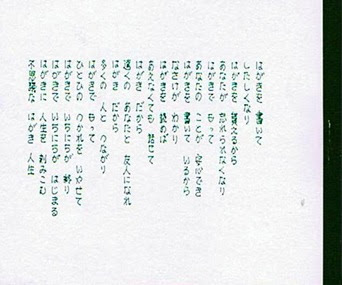 はがきを 書いて
したしくなり
はがきを 貰えるから
あなたが 忘れられなくなり
はがきで もって
あなたの ことが 安心でき
はがきを 書いて いるから
なさけが わかり
はがきを 読めば
あえなくても 話せて
はがき だから
遠くの あなたと 友人になれ
はがき だから
多くの 人と つながり
はがきで もって
ひとひの つかれを いやせて
はがきで いちにちが 終り
はがきで いちにちが はじまる
はがきに 人生を 刻みこむ
不思議な はがき 人生